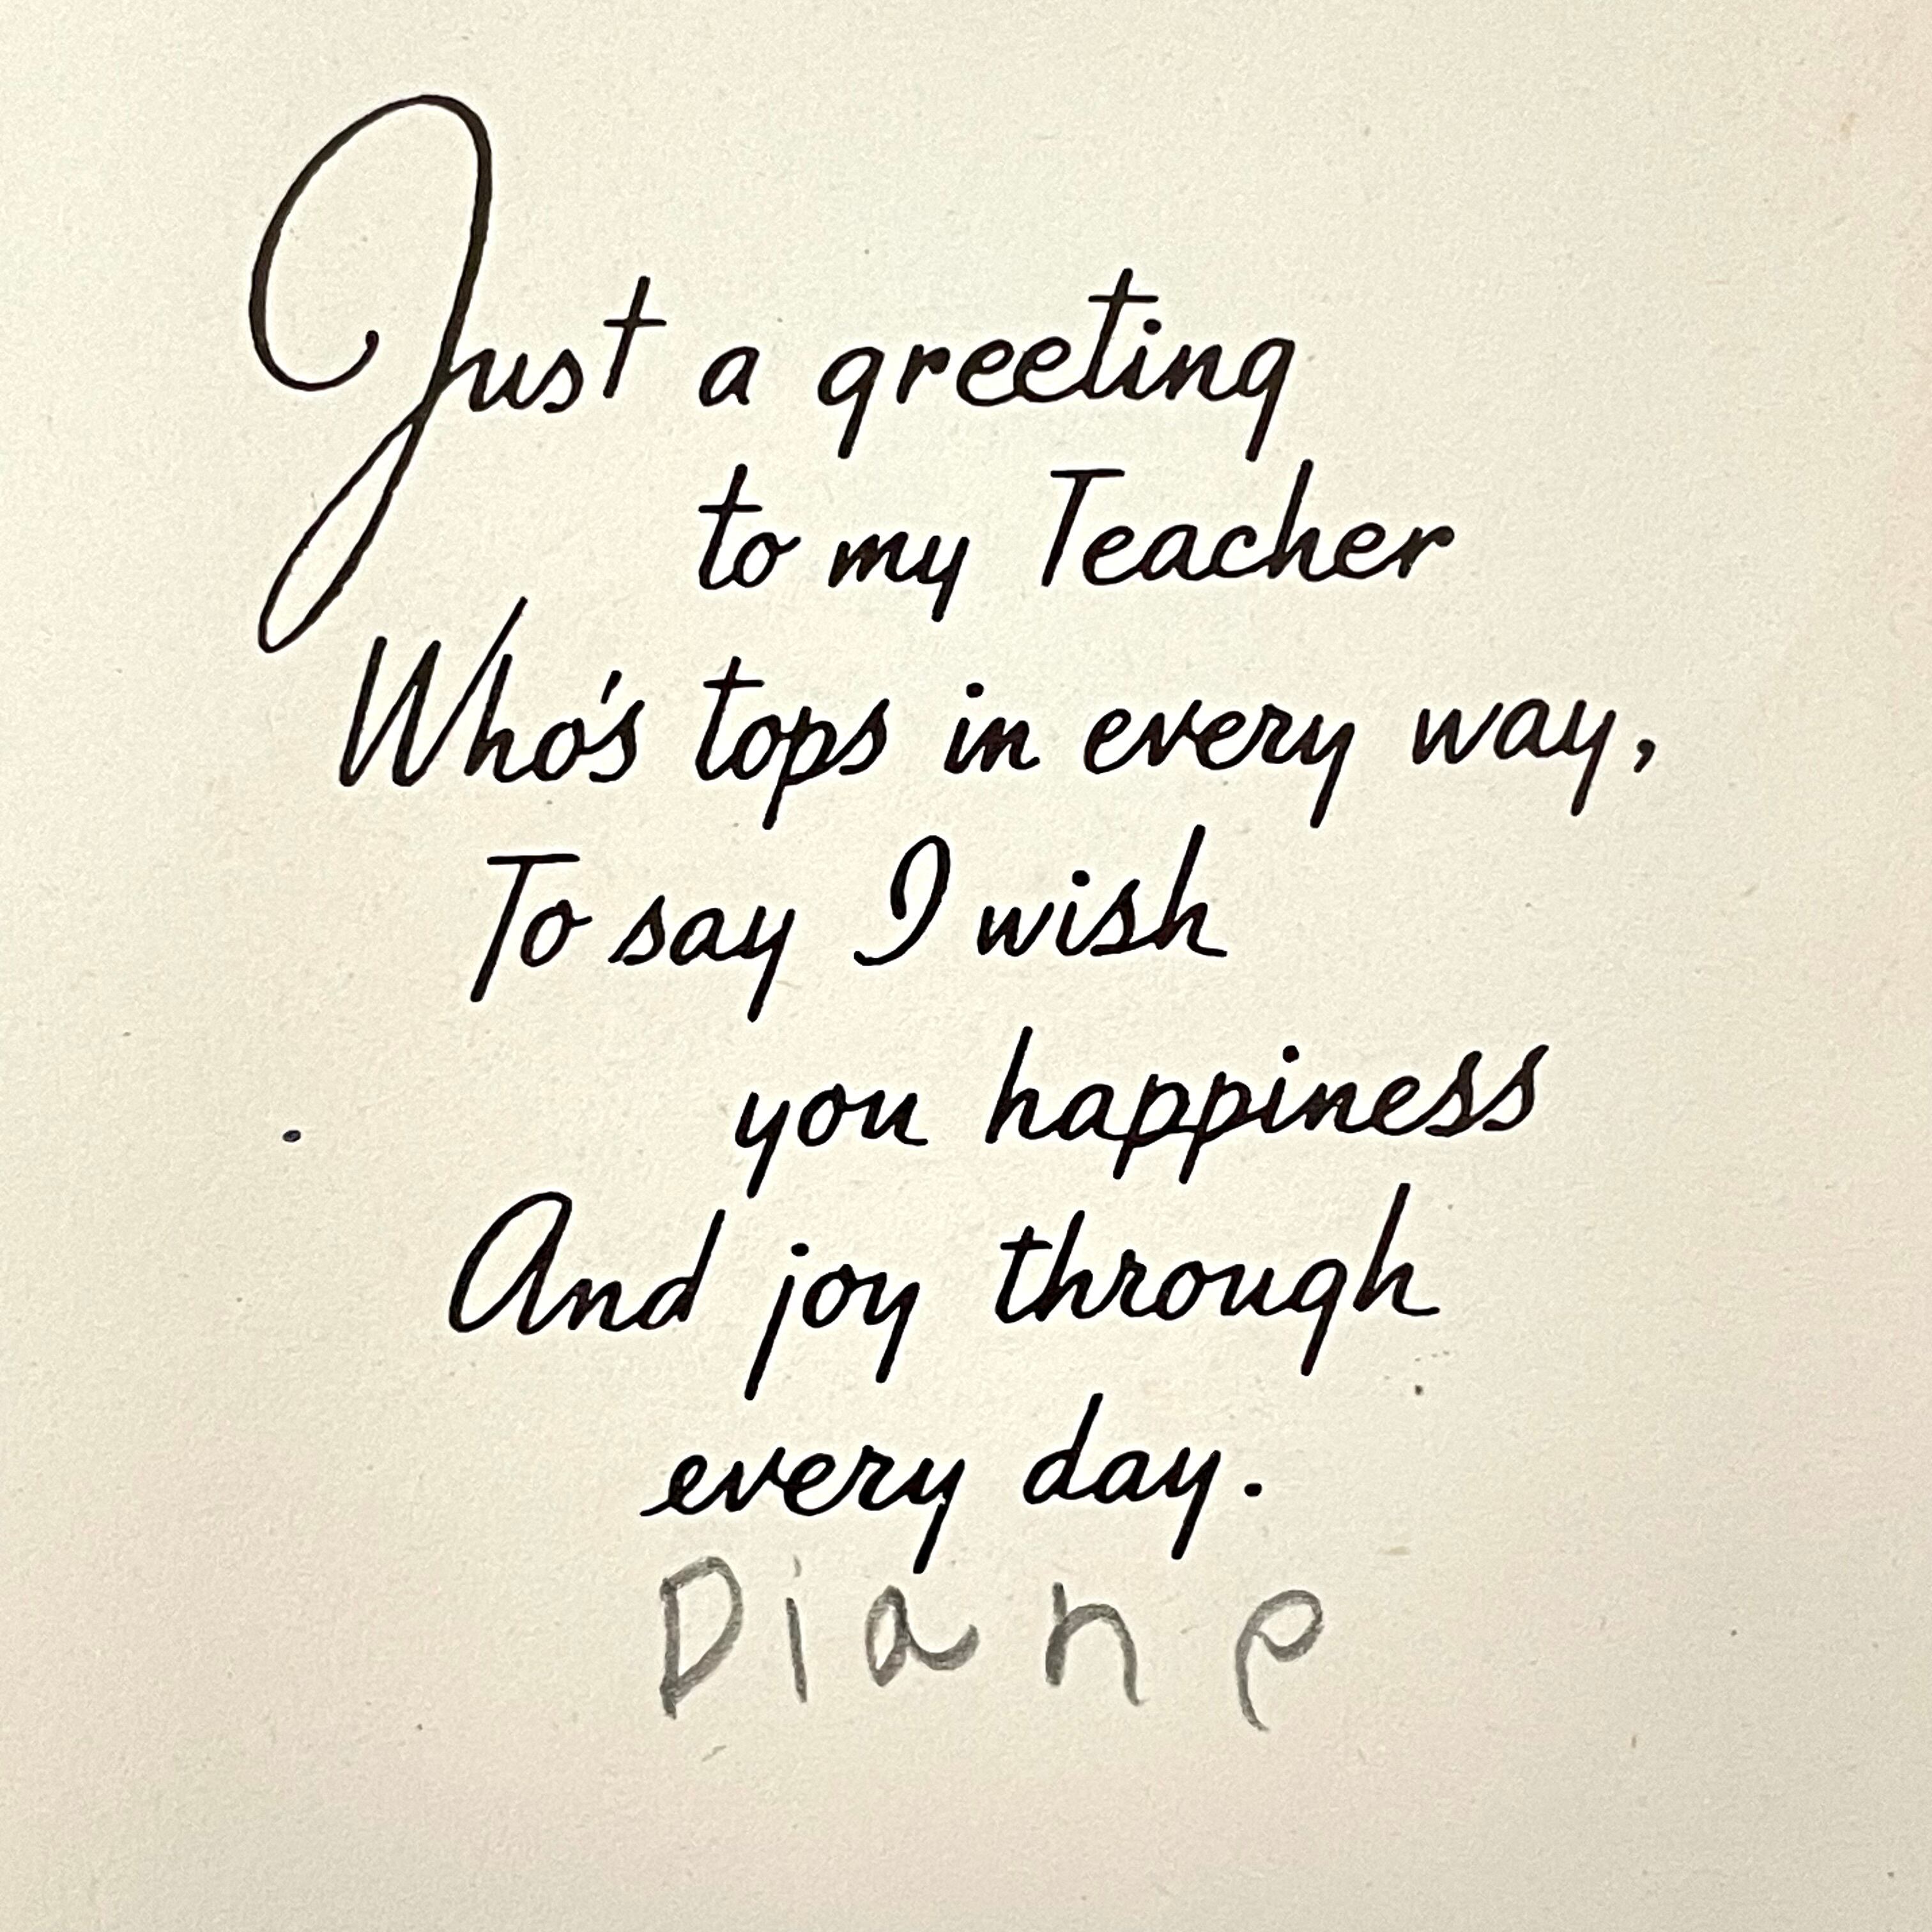 Just a greeting
to my Teacher
Who's tops in every way,
To say I wish
you happiness
And joy through
every day.
Diane